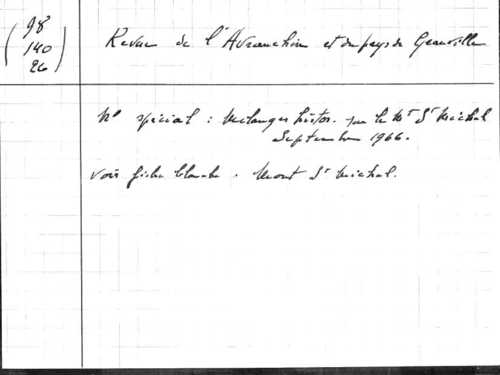 98
140
26
Revue de l'Avranchin et du pays de Granville
N° spécial : Mélanges histor. sur le Mt St Michel
Septembre 1966.
voir fiche blanche. Mont St Michel.